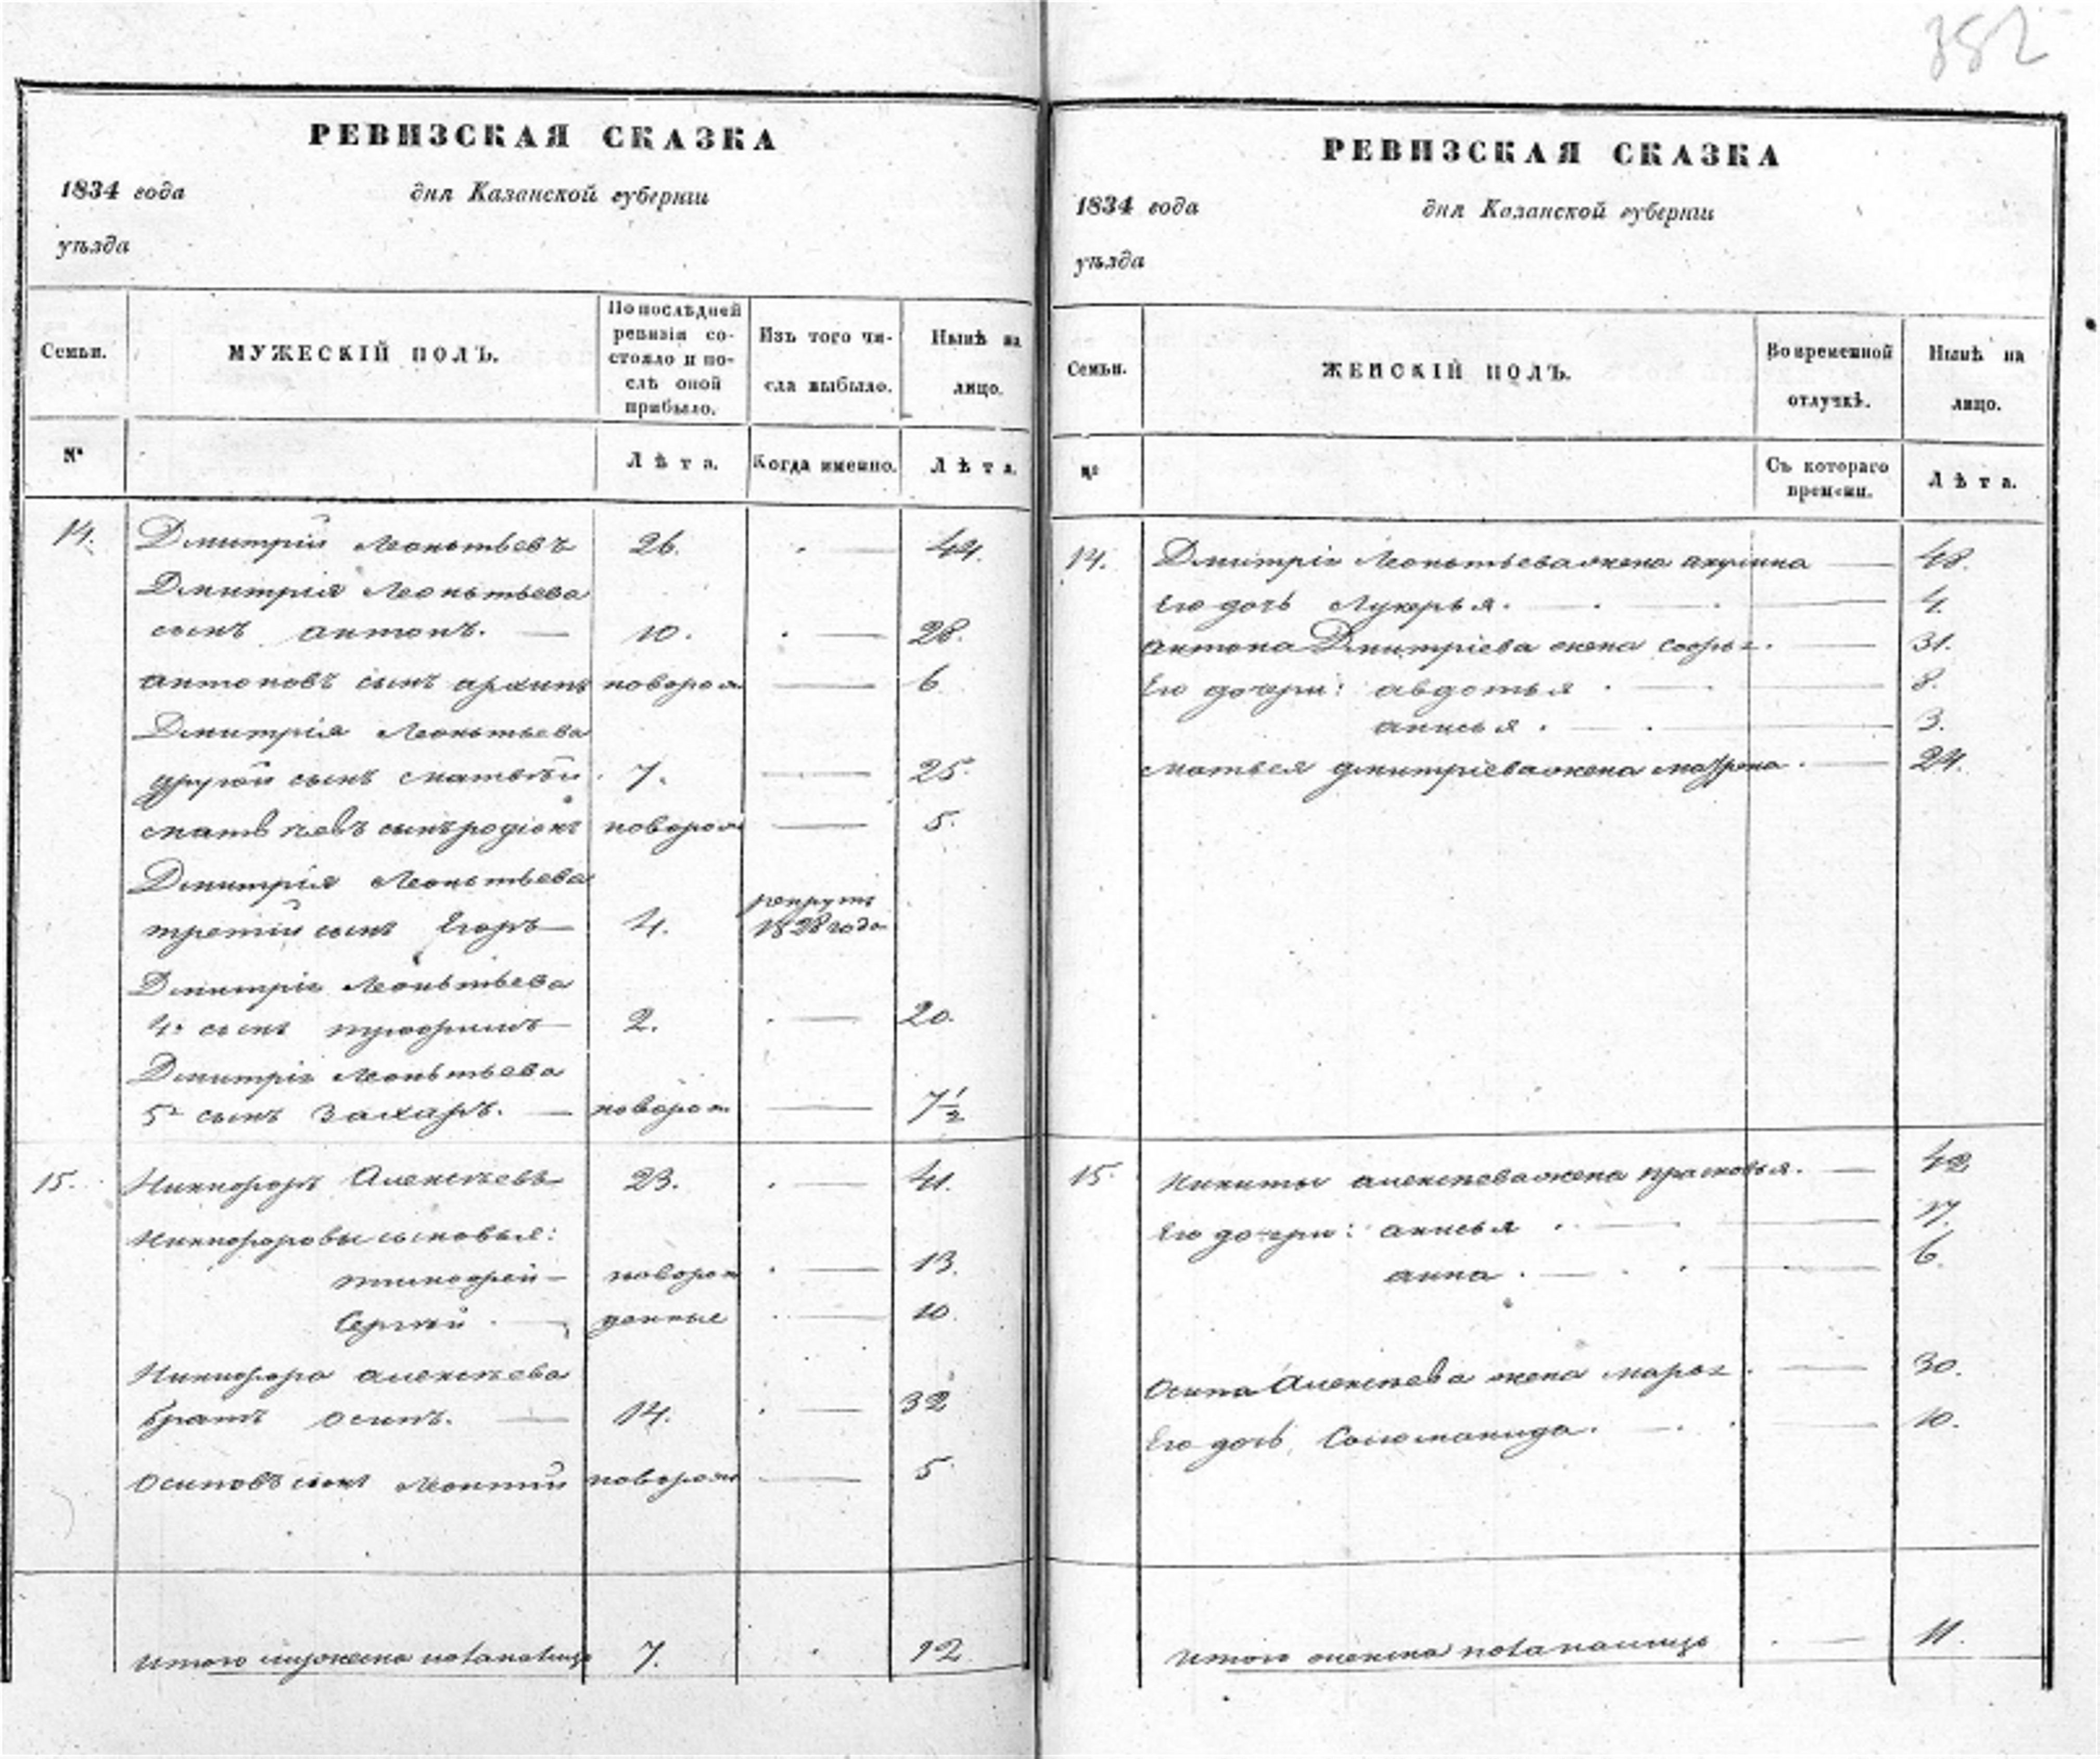 352
РЕВИЗСКАЯ СКАЗКА
1834 года дня Казанской губерніи
уѣзда
Семьи. МУЖЕСКІЙ ПОЛЪ. По послѣдней ревизіи состояло и послѣ оной прибыло. Изъ того числа выбыло. Нынѣ на лицо.
№ Лѣта. Когда именно. Лѣта.
14. Дмитрий Леонтьевъ 26. — 44.
Дмитрия Леонтьева
сынъ антонъ. — 10. — 28.
антоновъ сынъ архипъ новорож — 6
Дмитрія Леонтьева
другой сынъ матвѣй 7. — 25.
матвѣевъ сынъ родіонъ новорож — 5.
Дмитрія Леонтьева
третий сынъ Егоръ — 4. рекрутъ 1828 года
Дмитрія Леонтьева
4й сынъ трофимъ — 2. — 20.
Дмитрія Леонтьева
5й сынъ Захаръ. — новорож — 7½
15. Никифоръ Алексѣевъ 23. — 41.
Никифоровы сыновья:
тимофей — новорож — 13.
Сергѣй — денные — 10.
Никифора алексѣева
братъ осипъ. — 14. — 32
осиповъ сынъ Леонтий новорож — 5
итого мужеска пола налицо 7. 12.
РЕВИЗСКАЯ СКАЗКА
1834 года дня Казанской губерніи
уѣзда
Семьи. ЖЕНСКІЙ ПОЛЪ. Во временной отлучкѣ. Нынѣ на лицо.
№ Съ котораго времени. Лѣта.
14. Дмитрія Леонтьева жена акулина — 48.
Его дочь Лукерья. — 4.
антона Дмитріева жена софья. — 31.
Его дочери: авдотья — 8.
анисья. — 3.
матвея дмитріева жена матрена. — 24.
15. Никиты алексѣева жена прасковья. — 42
Его дочери: анисья — 17.
анна. — 6.
Осипа Алексѣева жена марья — 30.
Его дочь Соломанида. — 10.
итого женска пола налицо — 11.